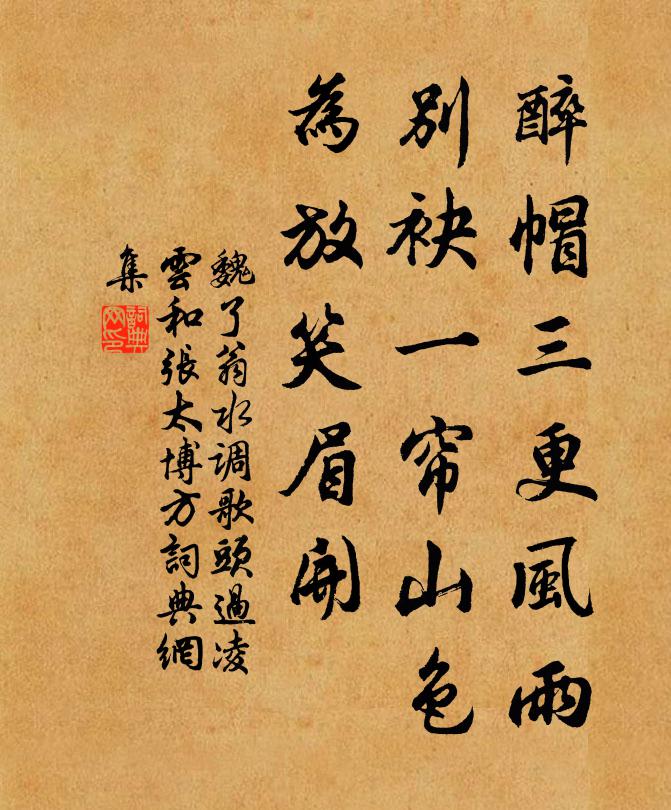 醉帽三更風雨
別袂一帘山色
為放笑眉開
魏了翁水调歌頭過凌
雲和張太博方詞典網
集
詞典
网印